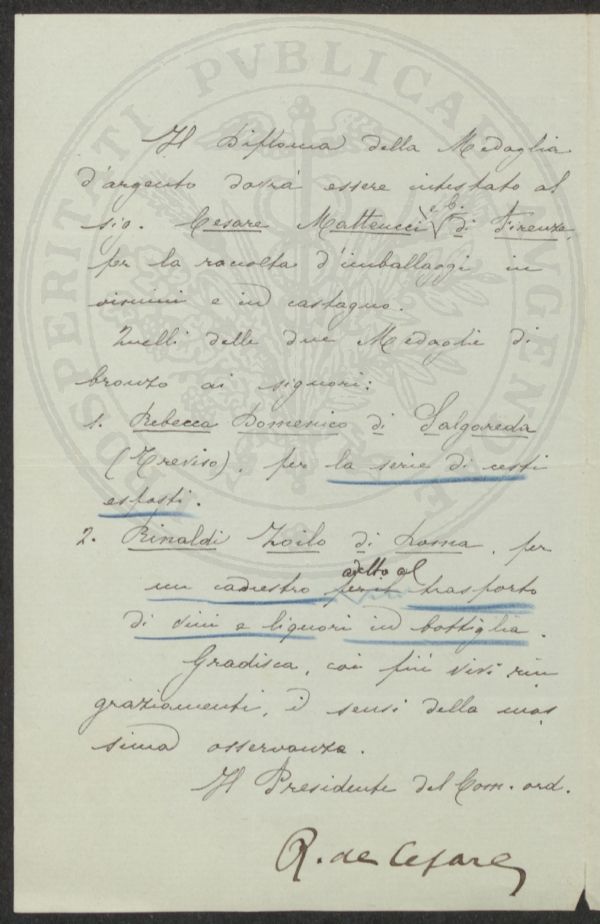 PROSPERITATI PVBLICAE AVGENDAE
Il Diploma della Medaglia
d'argento dovrà essere intestato al
sig. Cesare Matteucci di Firenze,
per la raccolta d'imballaggi in
vimini e in castagno.
Quelli delle due Medaglie di
bronzo ai signori:
1. Rebecca Domenico di Salgareda
(Treviso), per la serie di cesti
esposti.
2. Rinaldi Zoilo di Roma, per
adatto al
un canestro per il trasporto
di vini e liquori in bottiglia.
Gradisca, coi più vivi rin
graziamenti, i sensi della mas
sima osservanza.
Il Presidente del Com. ord.
R. de Cesare